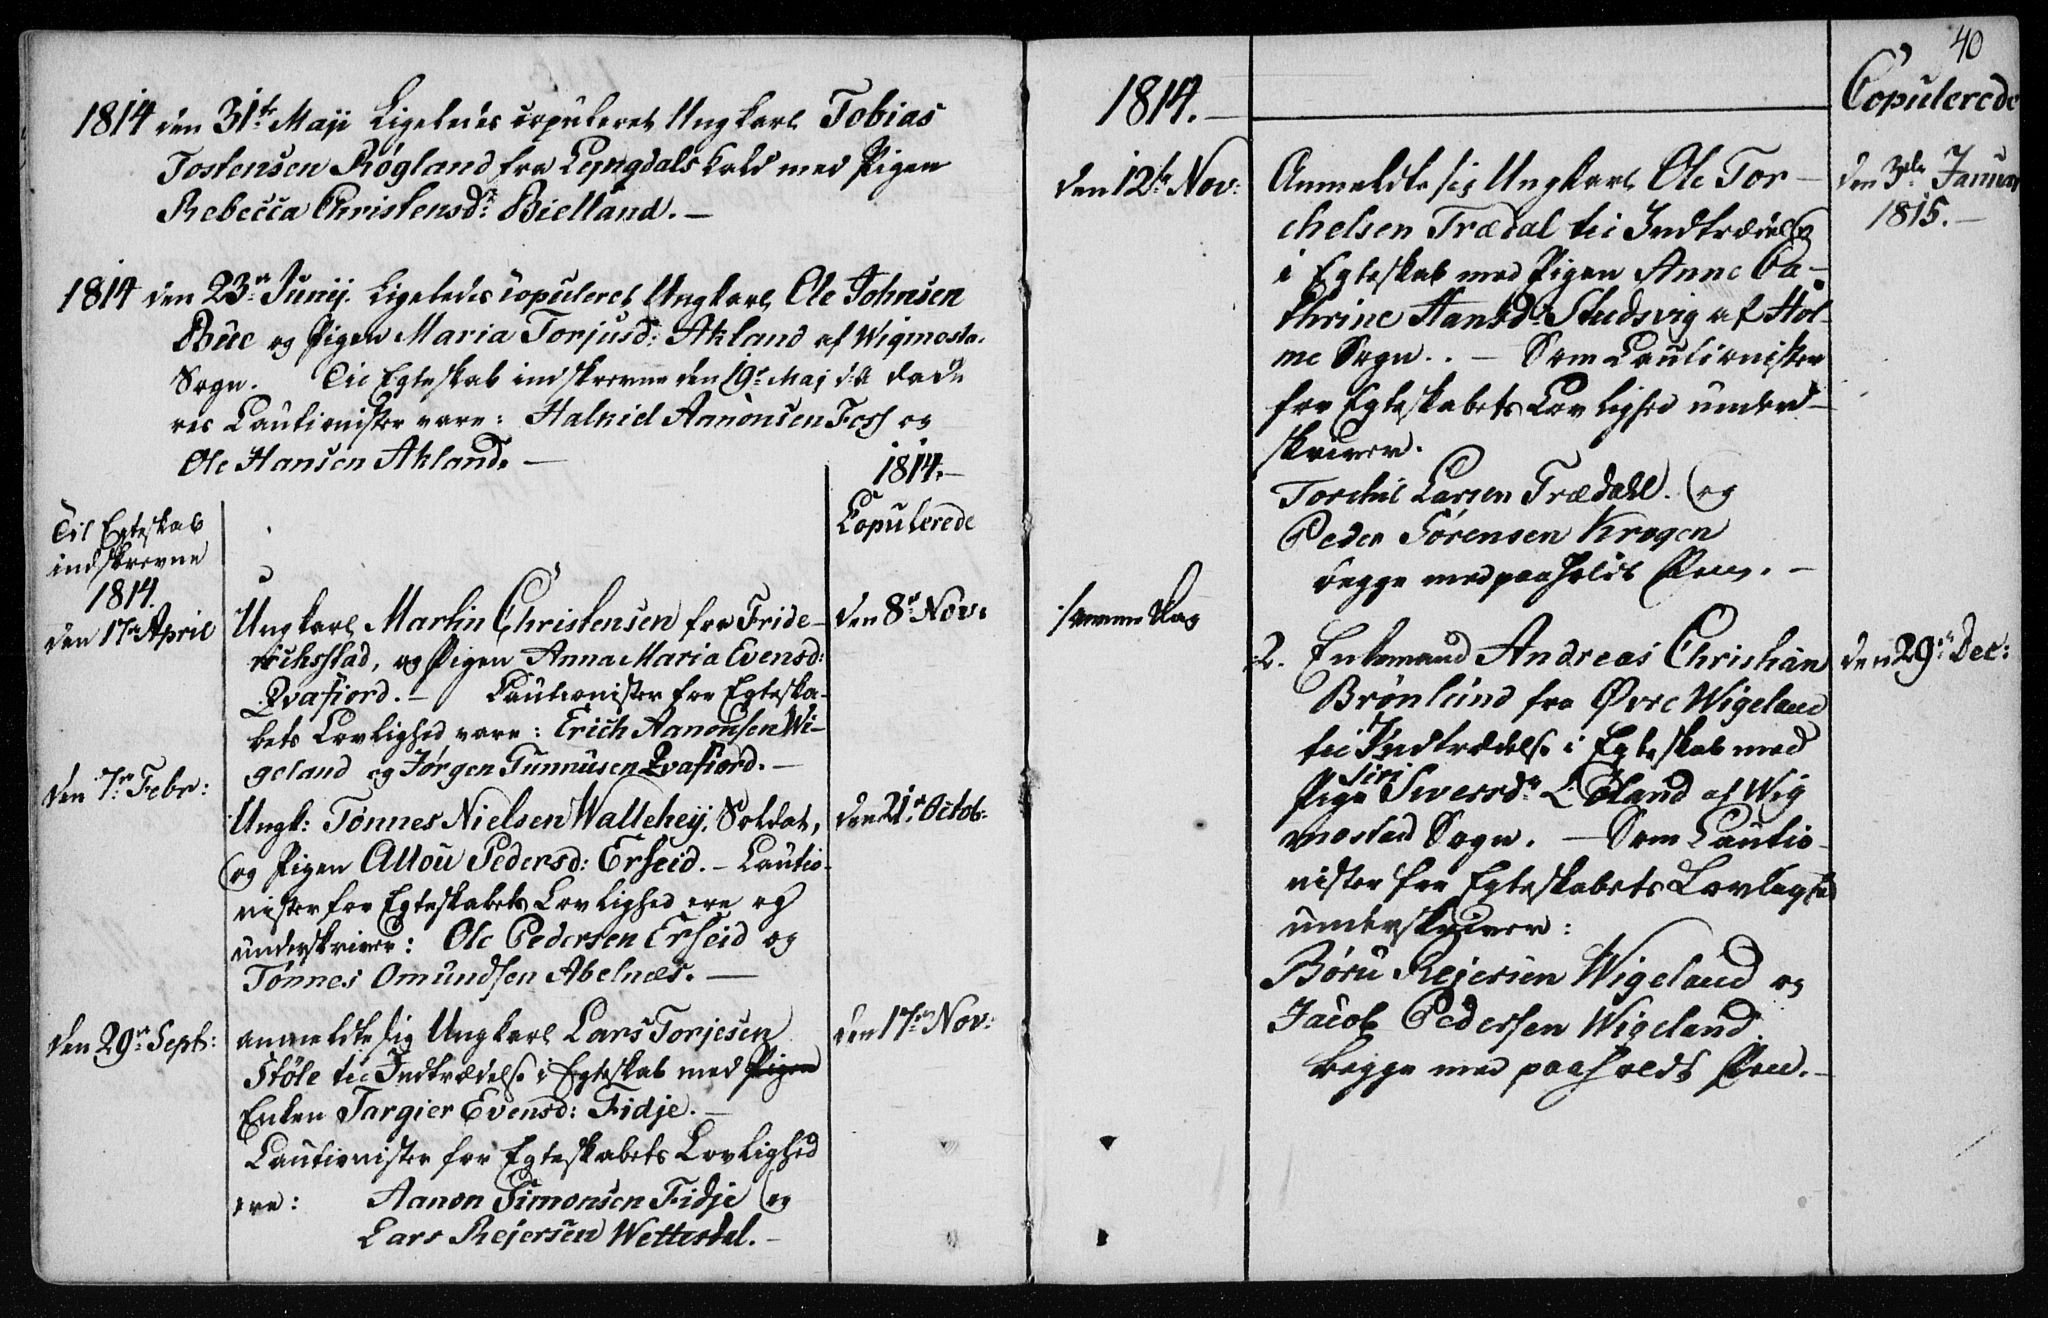 1814 den 31te Maji Ligeledes copuleret Ungkarl Tobias
Tostensen Røgland fra Lyngdals Kald med Pigen
Rebecca Christensdr Bielland. —
1814 den 23de Junij. Ligeledes copuleret Ungkarl Ole Johnsen
Bùe og Pigen Maria Torjusd: Akland af Wigmosta.
Sogn. Til Egteskab indskrevne den 19de Maj
Cautionister vare: Halkiel Aanonsen Foss og
Ole Hansen Akland. —
1814. —
Copulerede
Til Egteskab
indskrevne
1814.
den 17de April
Ungkarl Martin Christensen fra Fride-
richsstad, og Pigen Anna Maria Evensd:
Qvafiord. — Cautionister for Egteska-
bets Lovlighed vare: Erich Aanonsen Wi-
geland og Jørgen Tunnùsen Qvafiord. —
den 8de Nov:
den 7de Febr:
Ungk: Tønnes Nielsen Wallehej, Soldat,
og Pigen Allou Pedersd: Erseid. — Cautio-
nister for Egteskabets Lovlighed ere og
underskriver: Ole Pedersen Erseid og
Tønnes Omùndsen Abelnæs. —
den 21de Octob:
den 29de Sept:
anmeldte sig Ungkarl Lars Torjesen
Støle til Indtrædelse i Egteskab med Pigen
Enken Targier Evensd: Fidje. —
Cautionister for Egteskabets Lovlighed
ere: Aanon Simonsen Fidje og
Lars Rejersen Wettesdal. —
den 17de Nov:
40
1814. —
Copulerede
den 12te Nov:
Anmeldte sig Ungkarl Ole Tor-
chelsen Trædal til Indtrædelse
i Egteskab med Pigen Anne Ca-
thrine Hansdr Studsvig af Hol-
me Sogn. . — Som Cautionister
for Egteskabets Lovlighed under-
skriver.
Torchil Larsen Trædahl. og
Peder Sørensen Krogen
begge med paaholdt Pen. —
den 3die Januar
1815. —
samme Dag
2. Enkemand Andreas Christian
Brønlùnd fra Øvre Wigeland
til Indtrædelse i Egteskab med
Siri
Pige Siversdr Løland af Wig
mostad Sogn. — Som Cautio-
nister for Egteskabets Lovlighed
underskriver:
Børù Rejersen Wigeland og
Jacob Pedersen Wigeland.
begge med paaholdt Pen. —
den 29de Dec: